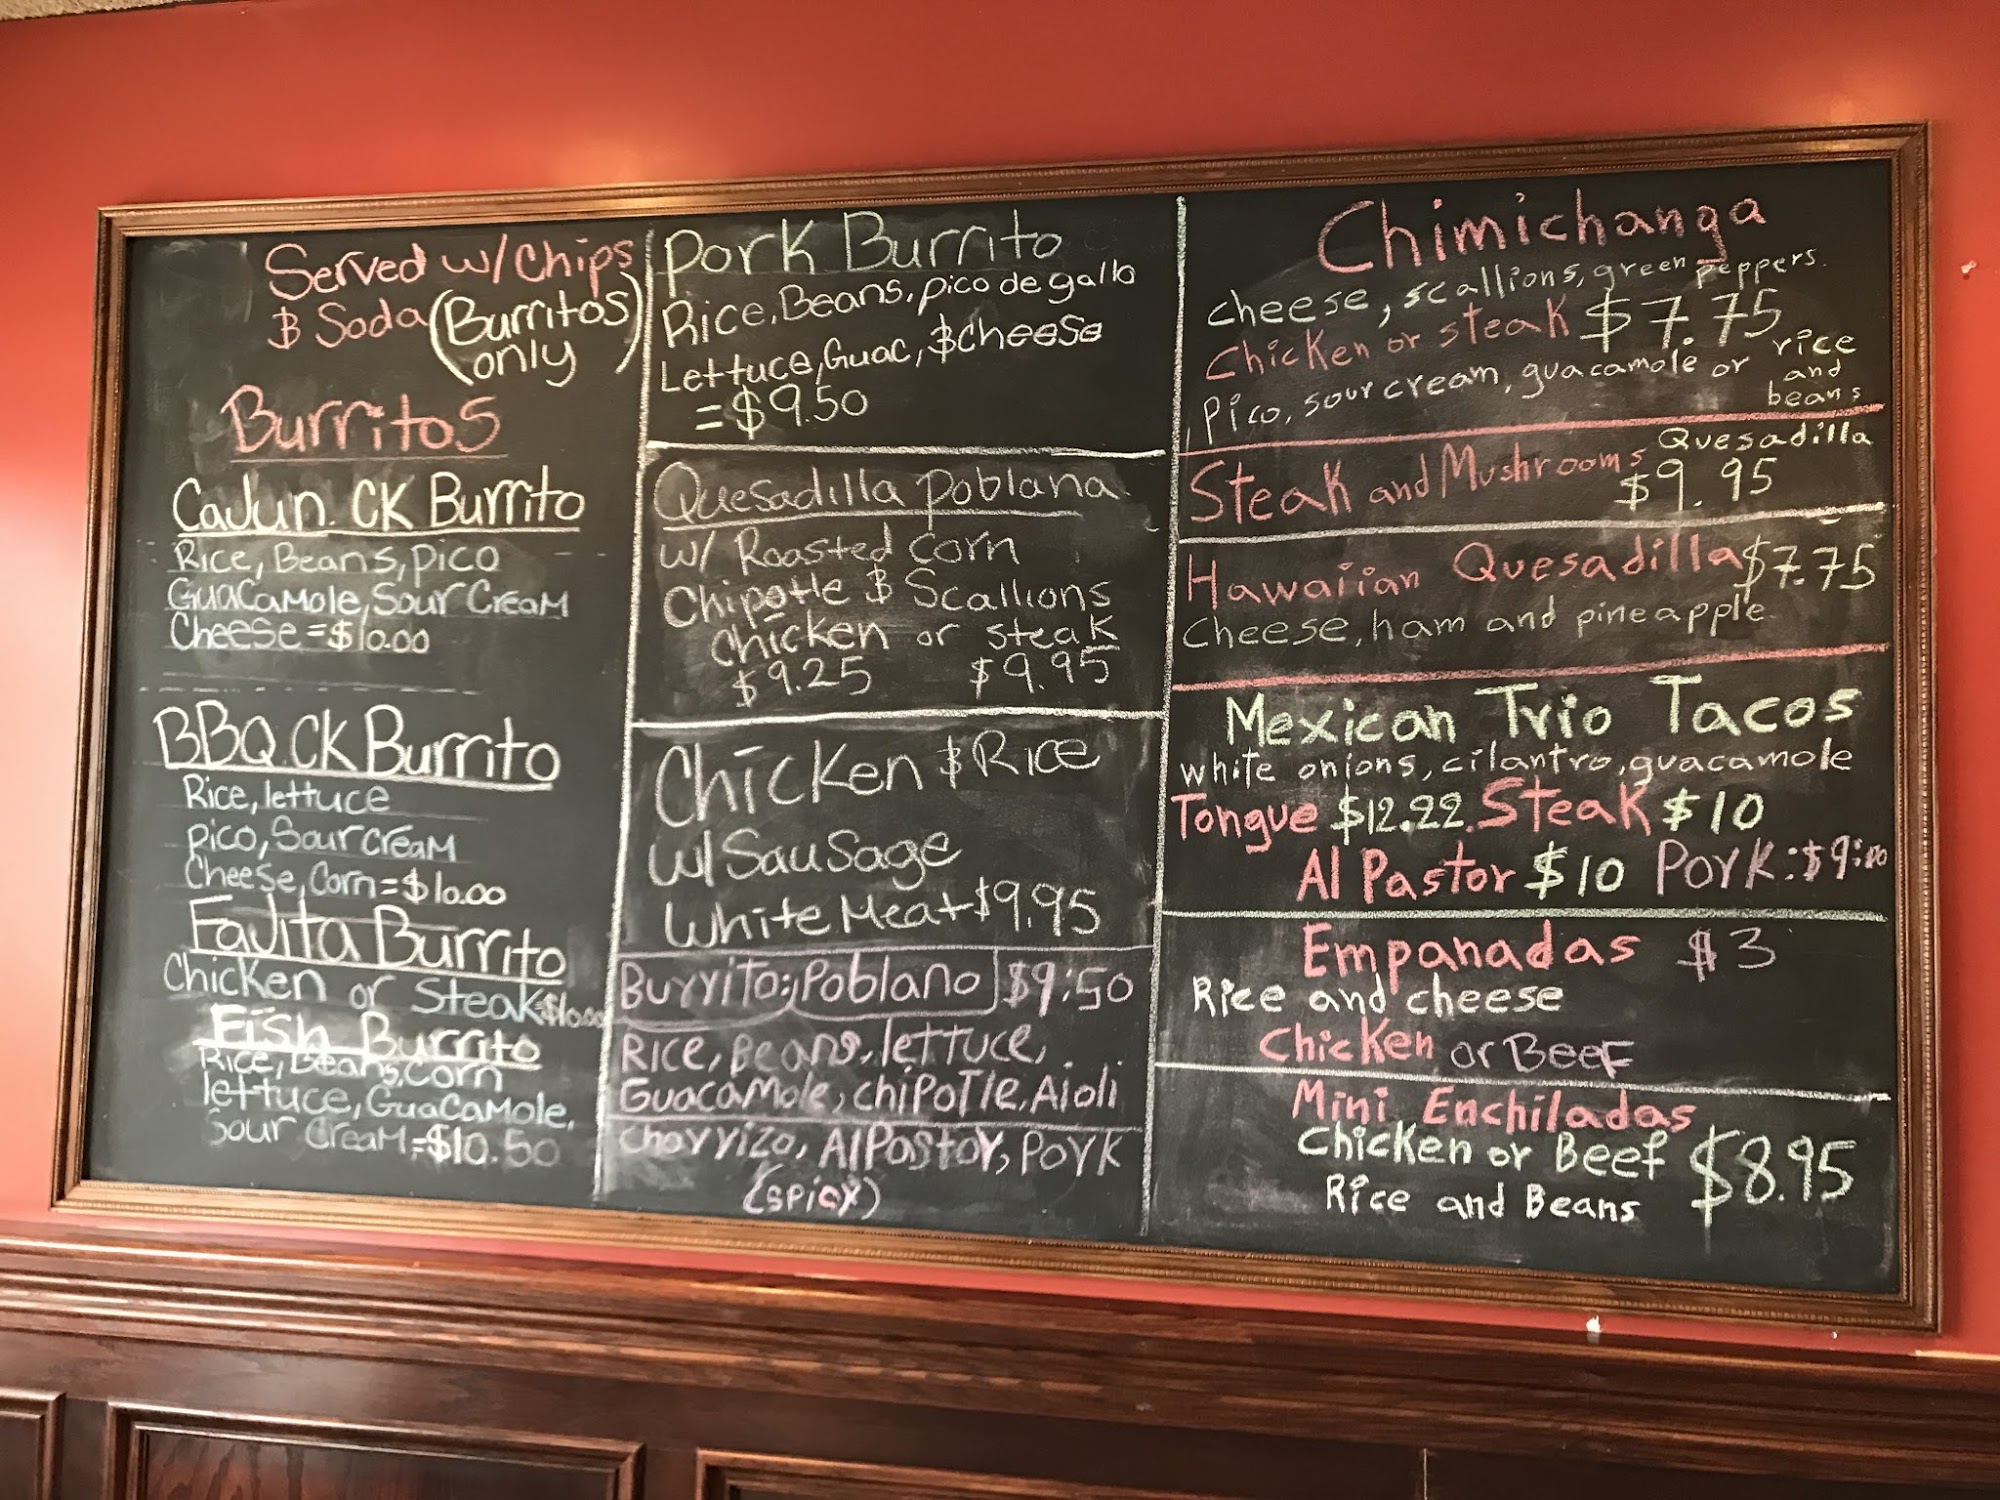 Served w/Chips
& Soda (Burritos only)
Burritos
Cajun CK Burrito
Rice, Beans, pico
Guacamole, Sour Cream
Cheese = $10.00
BBQ CK Burrito
Rice, lettuce
pico, Sour Cream
Cheese, Corn = $10.00
Fajita Burrito
Chicken or Steak $10.00
Fish Burrito
Rice, Beans, Corn
lettuce, Guacamole,
Sour Cream = $10.50
Pork Burrito
Rice, Beans, pico de gallo
Lettuce, Guac, & Cheese
= $9.50
Quesadilla Poblana
w/ Roasted corn
Chipotle & Scallions
Chicken or steak
$9.25 $9.95
Chicken & Rice
w/ Sausage
White Meat $9.95
Burrito; Poblano $9:50
Rice, Beans, lettuce,
Guacamole, chipotle, Aioli
chorrizo, Al Pastor, Pork
(spicy)
Chimichanga
cheese, scallions, green peppers.
Chicken or steak $7.75
Pico, sour cream, guacamole or rice and beans
Steak and Mushrooms Quesadilla
$9.95
Hawaiian Quesadilla $7.75
Cheese, ham and pineapple
Mexican Trio Tacos
white onions, cilantro, guacamole
Tongue $12.22. Steak $10
Al Pastor $10 Pork: $9:00
Empanadas $3
Rice and cheese
Chicken or Beef
Mini Enchiladas
Chicken or Beef $8.95
Rice and Beans